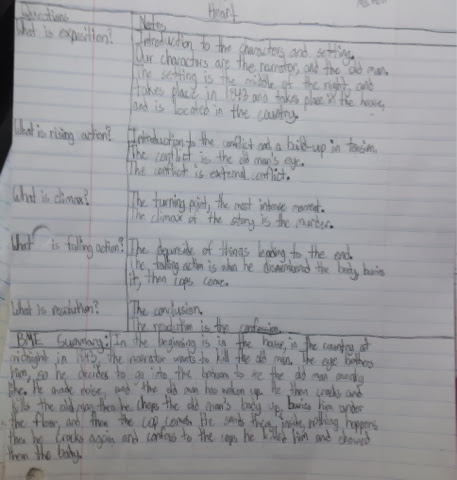 Heart
Questions Notes
What is exposition? Introduction to the characters and setting.
Our charactors are the narrator, and the old man.
The setting is the middle of the night, and
takes place in 1843 and takes place in the house,
and is located in the country.
What is rising action? Introduction to the conflict and a build-up in tension.
The conflict is the old man's eye.
The conflict is external conflict.
What is climax? The turning point, the most intense moment.
The climax of the story is the murder.
What is falling action? The of things leading to the end.
The falling action is when he dismembered the body, buries
it, then cops come.
What is resolution? The conclusion.
The resolution is the confession.
BME Summary: In the beginning is in the house, in the country at
midnight in 1843, the narrator wants to kill the old man. The eye bothers
him, so he decides to go into the to the old man
like. He made noise, and the old man has woken up. He then cracks and
kills the old man, then he chops the old man's body up, buries him under
the floor, and then the cop comes. He them inside, nothing happens
then he cracks again and confess to the cops he killed him and showed
them the body.